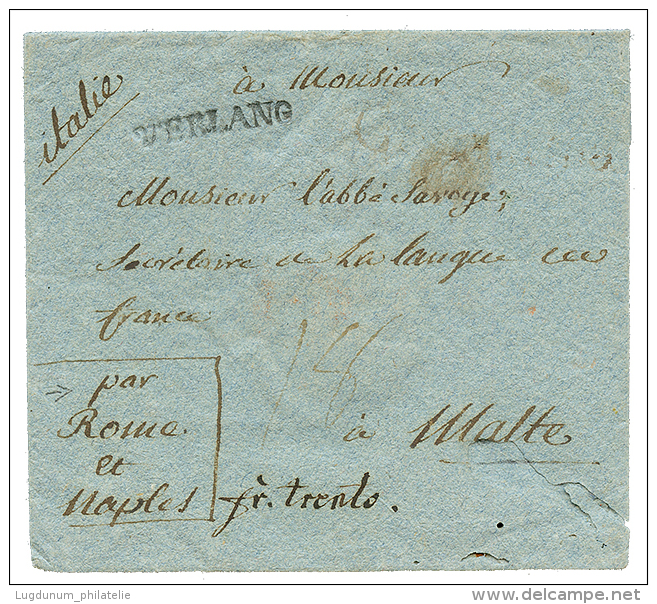 italie
à Monsieur
VERLANG
Monsieur l'abbé Savoye,
Secrétaire de La langue de
france
par
Rome
et
Naples
fr. trento.
à Malte
Lugdunum_philatelie
delcampe.net